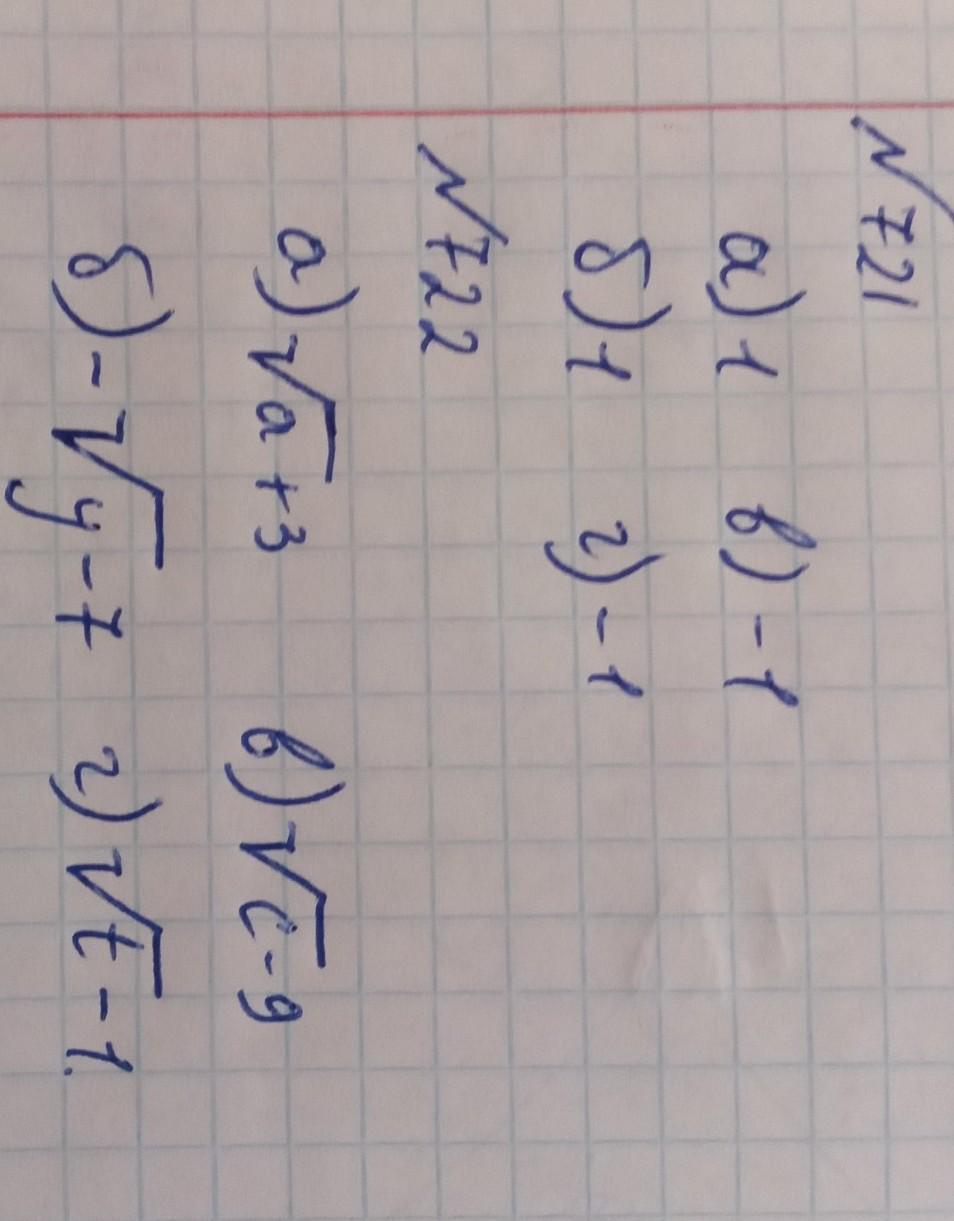 № 721
а) 1 в) -1
б) 1 г) -1
№ 722
а) √a + 3 в) √c - 9
б) - √y - 7 г) √t - 1.